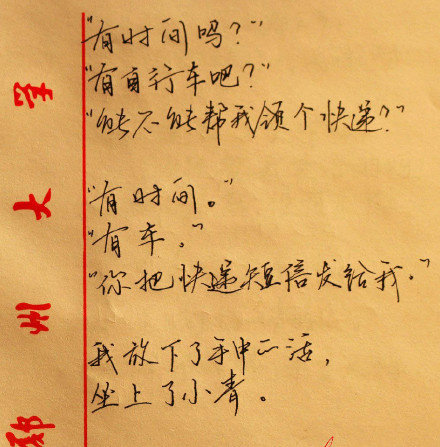 "有时间吗？"
"有自行车吧？"
"能不能帮我领个快递？"
"有时间。"
"有车。"
"你把快递短信发给我。"
我放下了手中的活，
坐上了小青。
郑州大学